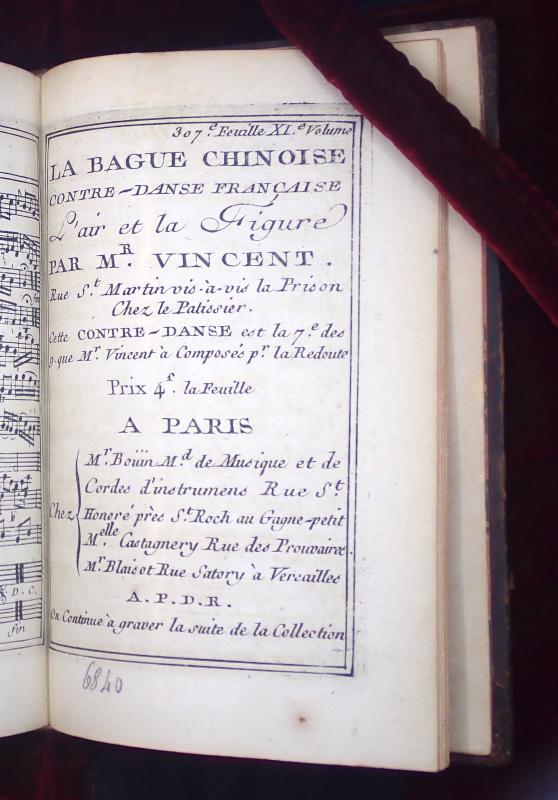 307.e Feuille XI.e Volume
LA BAGUE CHINOISE
CONTRE-DANSE FRANÇAISE
L'air et la Figure
PAR MR. VINCENT.
Rue St. Martin vis-à-vis la Prison
Chez le Patissier.
Cette CONTRE-DANSE est la 7.e des
9. que Mr. Vincent à Composés pr. la Redoute
Prix 4f. la Feuille
A PARIS
Chez
Mr. Boüin Md. de Musique et de
Cordes d'instrumens Rue St.
Honoré près St. Roch au Gagne-petit
Melle. Castagnery Rue des Prouvaires.
Mr. Blaisot Rue Satory à Versailles
A.P.D.R.
On Continue à graver la suite de la Collection
6840
D.C.
fin